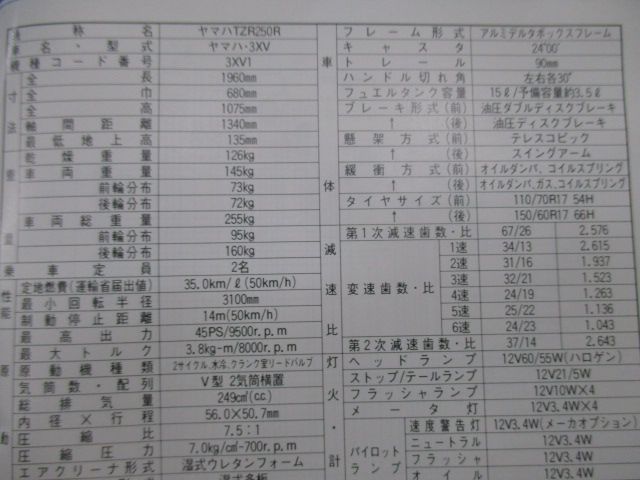 通称名 ヤマハTZR250R
車名・型式 ヤマハ・3XV
機種コード番号 3XV1
寸法
全長 1960mm
全巾 680mm
全高 1075mm
軸間距離 1340mm
最低地上高 135mm
重量
乾燥重量 126kg
車両重量 145kg
前輪分布 73kg
後輪分布 72kg
車両総重量 255kg
前輪分布 95kg
後輪分布 160kg
乗車定員 2名
性能
定地燃費(運輸省届出値) 35.0km/ℓ(50km/h)
最小回転半径 3100mm
制動停止距離 14m(50km/h)
最高出力 45PS/9500r.p.m
最大トルク 3.8kg-m/8000r.p.m
原動
原動機種類 2サイクル、水冷、クランク室リードバルブ
気筒数・配列 V型 2気筒横置
総排気量 249cm³(cc)
内径×行程 56.0×50.7mm
圧縮比 7.5:1
圧縮圧力 7.0kg/cm²-700r.p.m
エアクリーナ形式 湿式ウレタンフォーム
湿式多板
車体
フレーム形式 アルミデルタボックスフレーム
キャスタ 24°00′
トレール 90mm
ハンドル切れ角 左右各30°
フュエルタンク容量 15ℓ/予備容量約3.5ℓ
ブレーキ形式(前) 油圧ダブルディスクブレーキ
↑(後) 油圧ディスクブレーキ
懸架方式(前) テレスコピック
↑(後) スイングアーム
緩衝方式(前) オイルダンパ、コイルスプリング
↑(後) オイルダンパ、ガス、コイルスプリング
タイヤサイズ(前) 110/70R17 54H
↑(後) 150/60R17 66H
減速比
第1次減速歯数・比 67/26 2.576
変速歯数・比
1速 34/13 2.615
2速 31/16 1.937
3速 32/21 1.523
4速 24/19 1.263
5速 25/22 1.136
6速 24/23 1.043
第2次減速歯数・比 37/14 2.643
灯火・計
ヘッドランプ 12V60/55W(ハロゲン)
ストップ/テールランプ 12V21/5W
フラッシャランプ 12V10W×4
メータ灯 12V3.4W×4
パイロットランプ
速度警告灯 12V3.4W(メーカオプション)
ニュートラル 12V3.4W
フラッシャ 12V3.4W
オイル 12V3.4W